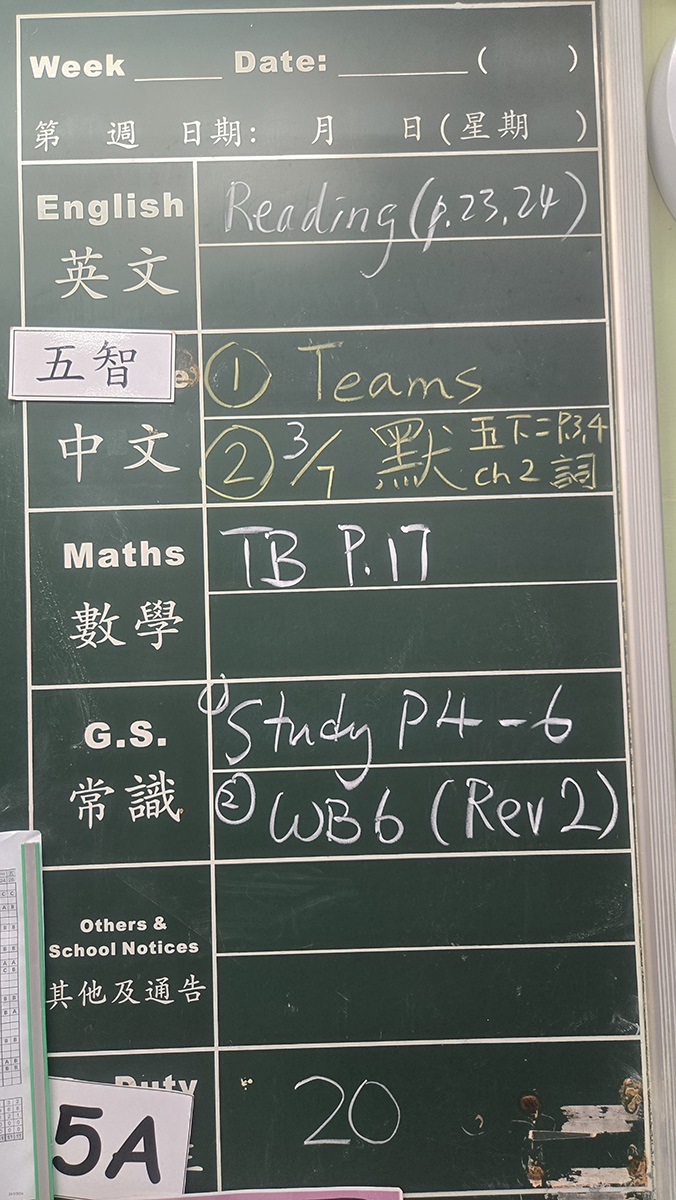 Week ____ Date: ______ ( )
第 週 日期: 月 日(星期 )
English
英文
Reading (p.23,24)
五智
中文
① Teams
② 3/7 默 五下二P.3,4
ch 2 詞
Maths
數學
TB P.17
G.S.
常識
① Study P4-6
② WB6 (Rev 2)
Others &
School Notices
其他及通告
Duty
20
5A